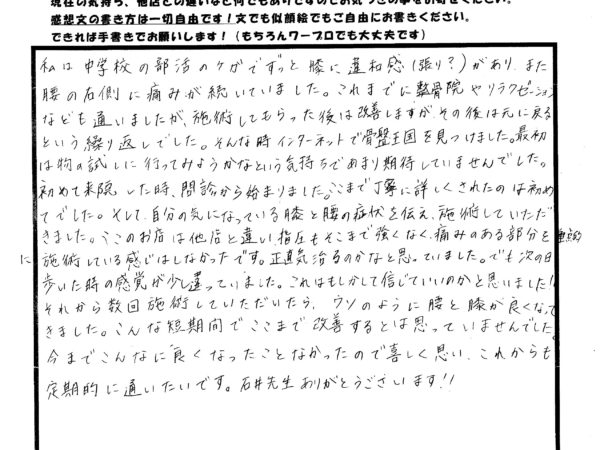 感想文の書き方は一切自由です！文でも似顔絵でもご自由にお書きください。
できれば手書きでお願いします！（もちろんワープロでも大丈夫です）
私は中学校の部活のケガでずっと膝に違和感(張り?)があり、また
腰の右側に痛みが続いていました。これまでに整骨院やリラクゼーション
なども通いましたが、施術してもらった後は改善しますが、その後は元に戻る
という繰り返しでした。そんな時インターネットで骨盤王国を見つけました。最初
は物の試しに行ってみようかなという気持ちであまり期待していませんでした。
初めて来院した時、問診から始まりました。ここまで丁寧に詳しくされたのは初め
てでした。そして、自分の気になっている膝と腰の症状を伝え、施術していただ
きました。ここのお店は他店と違い、指圧もそこまで強くなく、痛みのある部分を重点的
に施術している感じはしなかったです。正直気治るのかなと思っていました。でも次の日
歩いた時の感覚が少し違っていました。これはもしかして信じていいのかと思いました!
それから数回施術していただいたら、ウソのように腰と膝が良くなって
きました。こんな短期間でここまで改善するとは思っていませんでした。
今までこんなに良くなったことなかったので喜しく思い、これからも
定期的に通いたいです。石井先生ありがとうございます!!